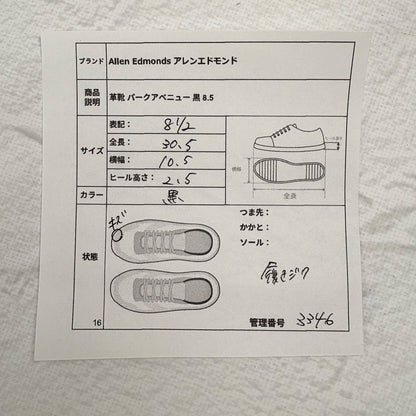 ブランド Allen Edmonds アレンエドモンド
商品説明 革靴 パークアベニュー 黒 8.5
サイズ
表記： 8 1/2
全長： 30.5
横幅： 10.5
ヒール高さ： 2.5
横幅
全長
カラー 黒
状態
キズ
つま先：
かかと：
ソール：
履きジワ
16
管理番号 3346